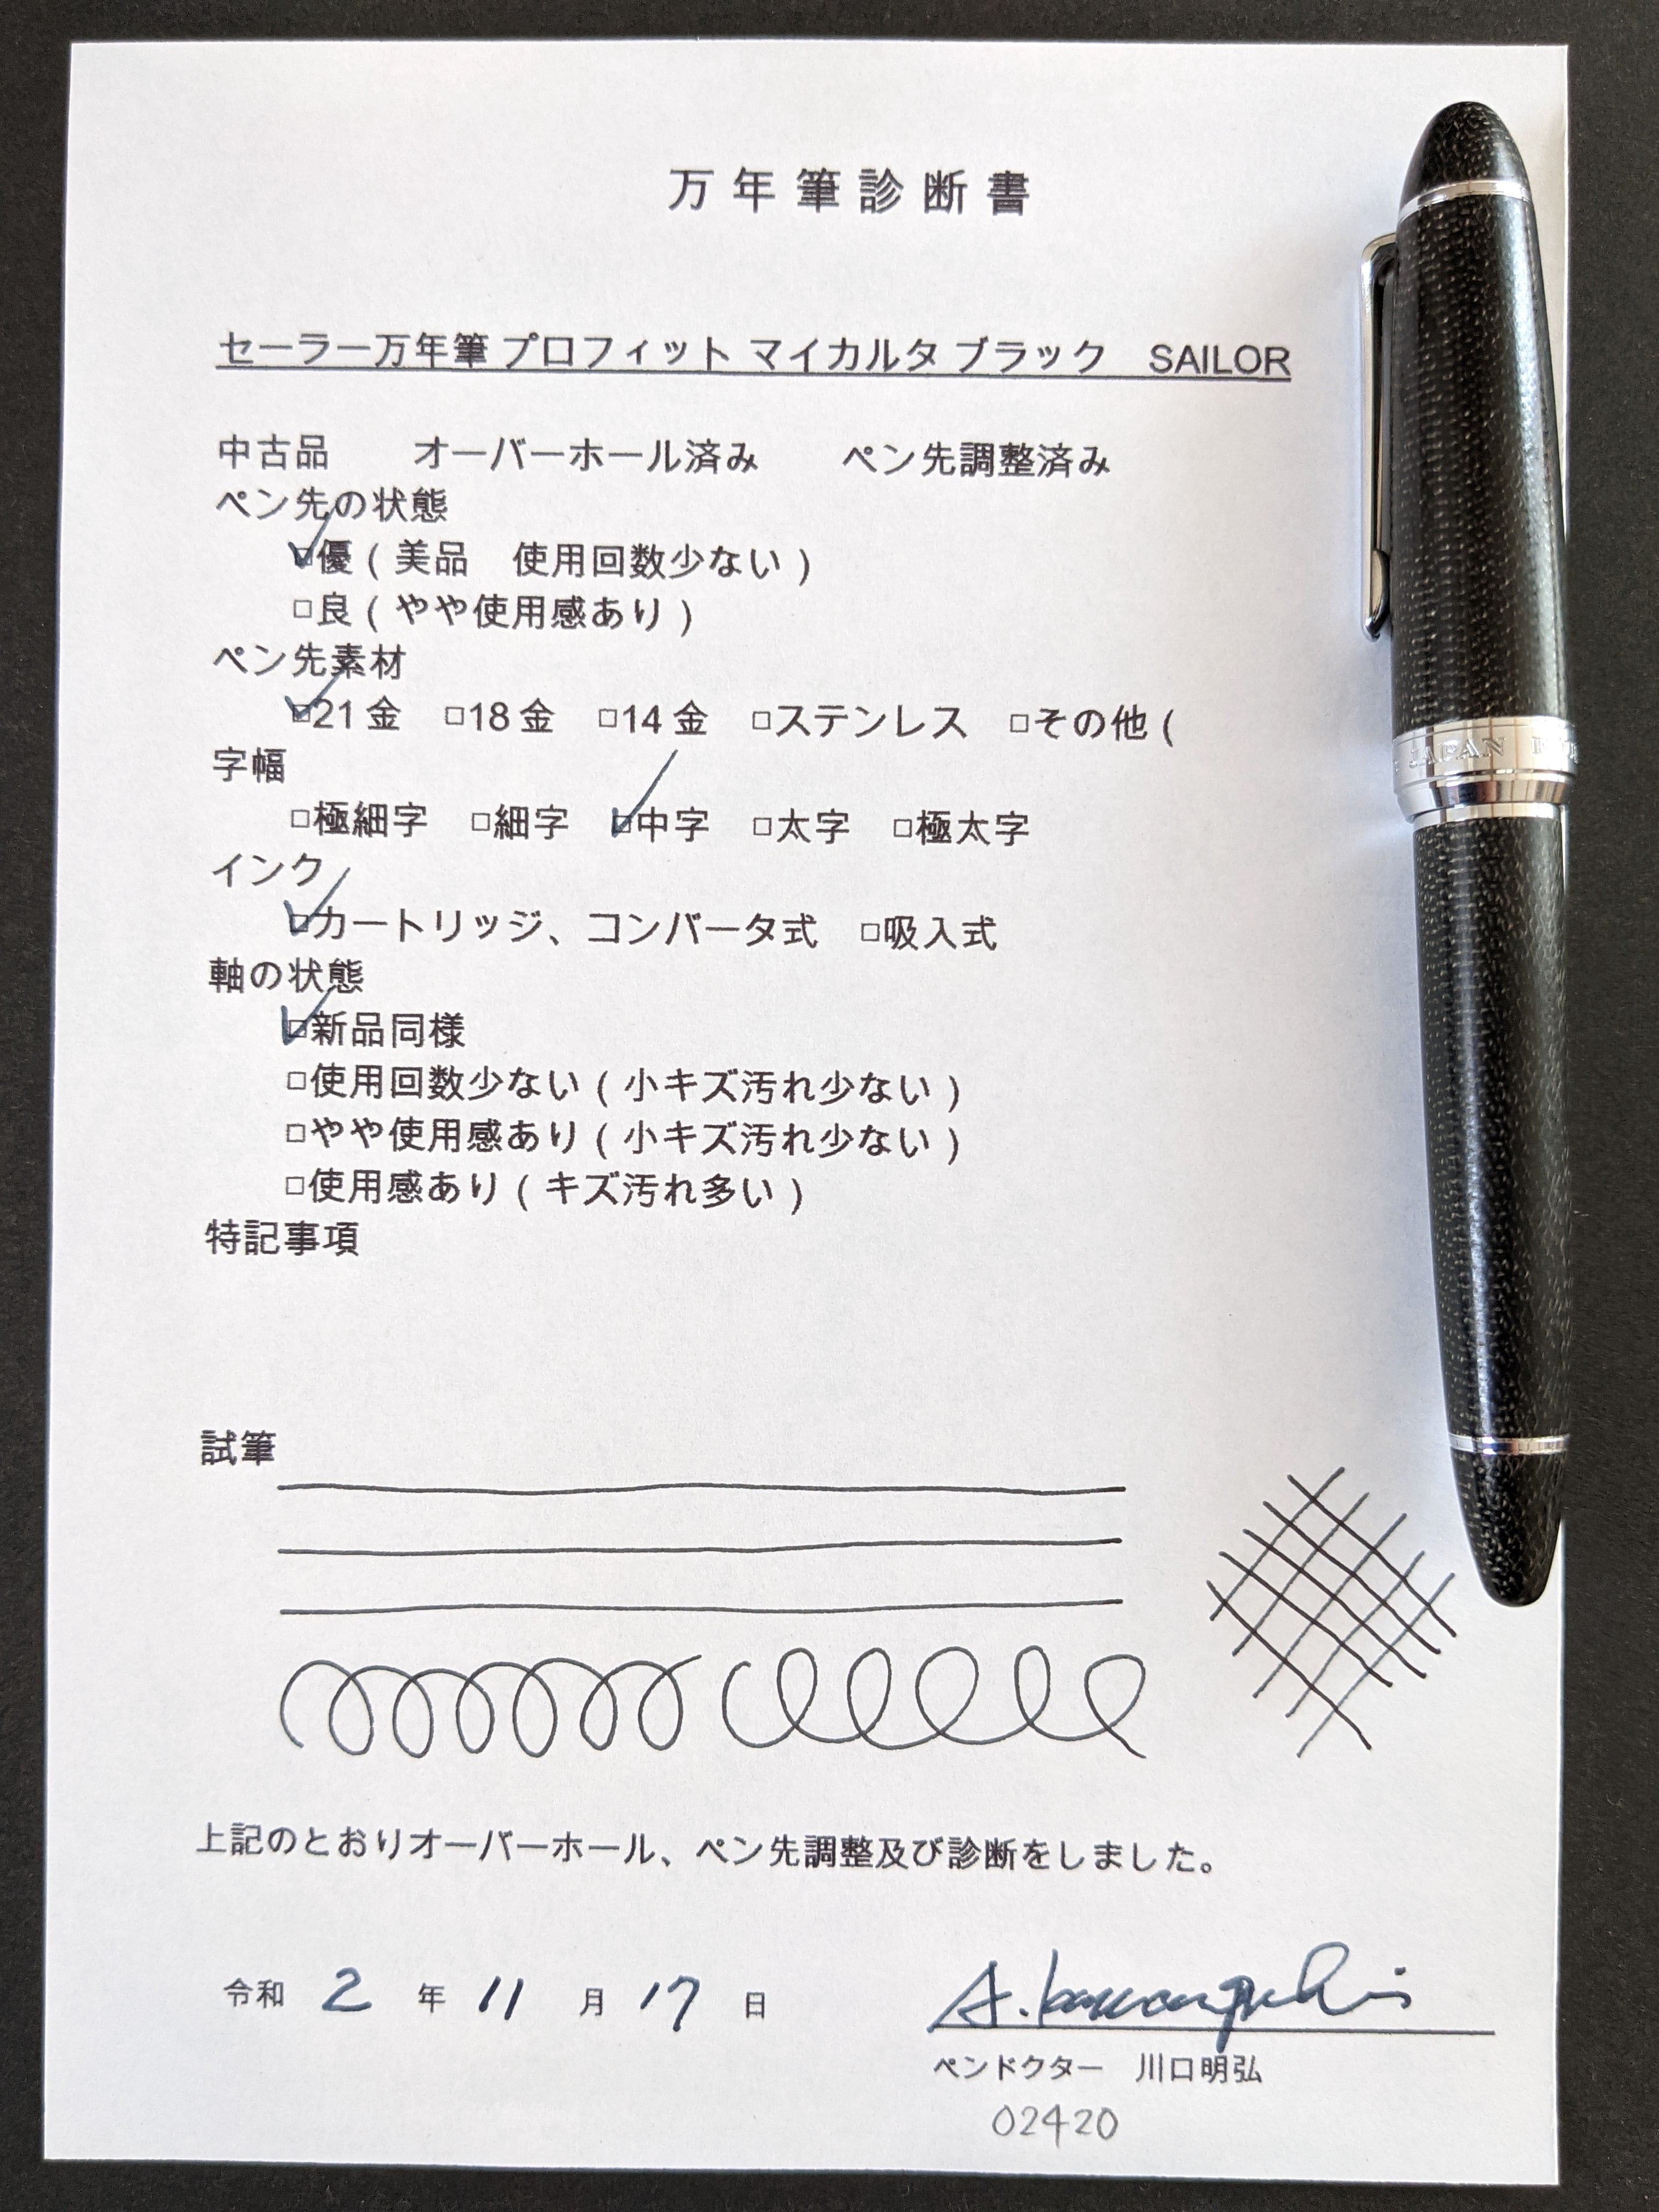 万年筆診断書
セーラー万年筆 プロフィット マイカルタ ブラック　SAILOR
中古品　　オーバーホール済み　　ペン先調整済み
ペン先の状態
☑優（美品　使用回数少ない）
□良（やや使用感あり）
ペン先素材
☑21金　□18金　□14金　□ステンレス　□その他（
字幅
□極細字　□細字　☑中字　□太字　□極太字
インク
☑カートリッジ、コンバータ式　□吸入式
軸の状態
☑新品同様
□使用回数少ない（小キズ汚れ少ない）
□やや使用感あり（小キズ汚れ少ない）
□使用感あり（キズ汚れ多い）
特記事項
試筆
上記のとおりオーバーホール、ペン先調整及び診断をしました。
令和 2 年 11 月 17 日
A. kawaguchi
ペンドクター　川口明弘
02420
JAPAN